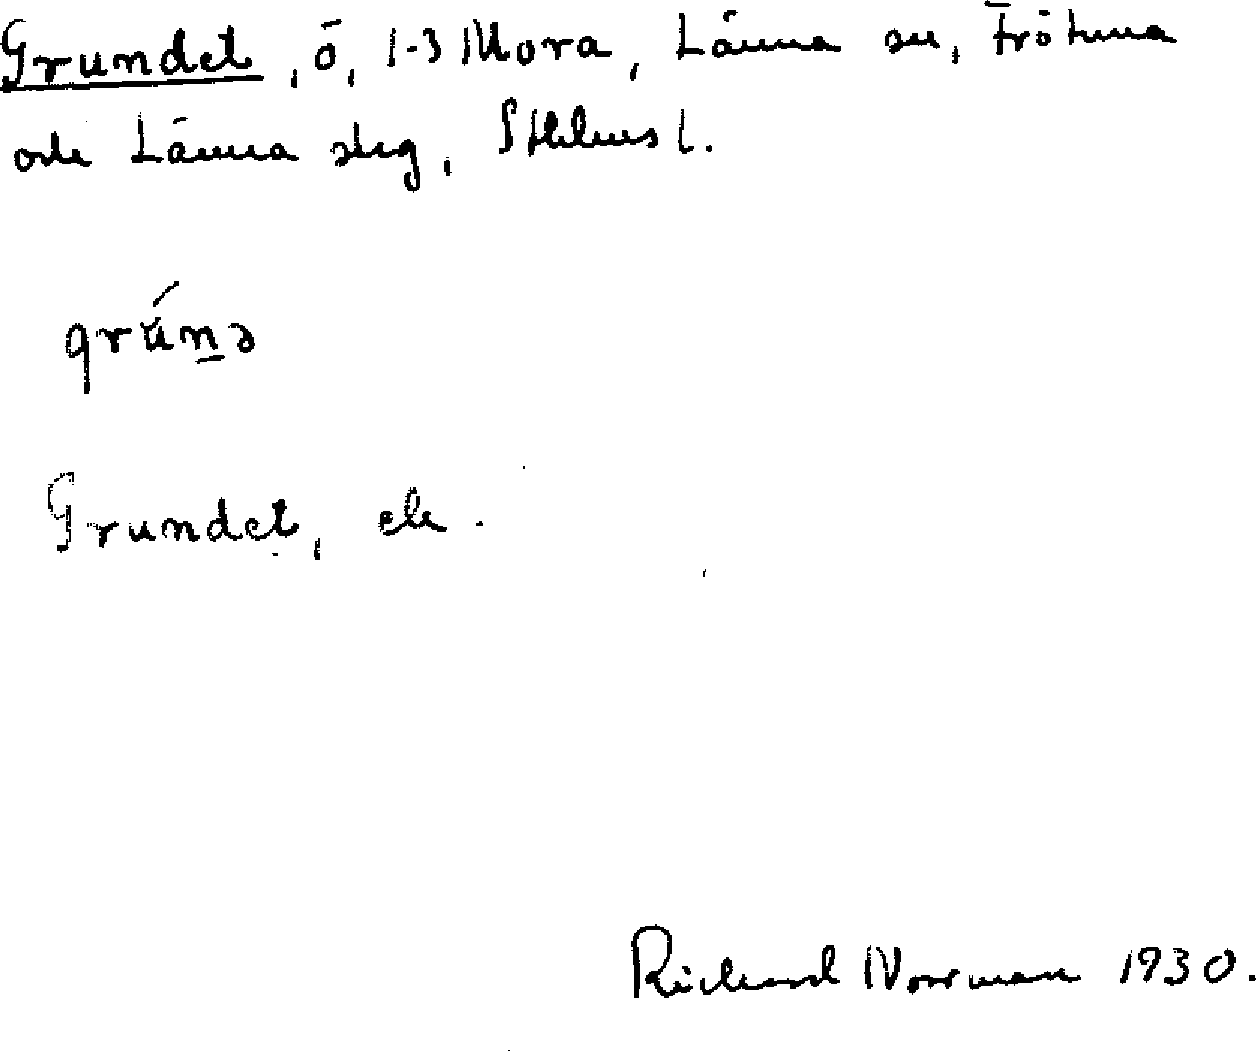 Grundet, ö, 1-3 Mora, Länna sn, Frötuna
och Länna slg, Sthlms l.
grúnə
Grundet, ek.
Richard Norrman 1930.